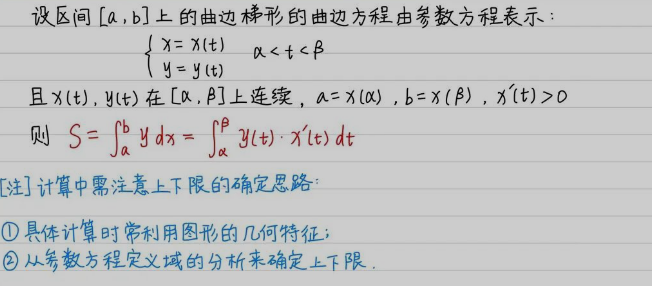 设区间[a,b]上的曲边梯形的曲边方程由参数方程表示:
{ x=x(t) α<t<β
y=y(t)
且x(t),y(t)在[α,β]上连续, a=x(α), b=x(β), x′(t)>0
则 S=∫ₐᵇ y dx=∫_α^β y(t)·x′(t) dt
[注]计算中需注意上下限的确定思路:
①具体计算时常利用图形的几何特征;
②从参数方程定义域的分析来确定上下限.